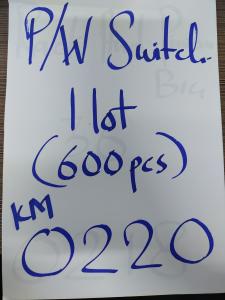 P/W Switch.
1 lot
(600 pcs)
KM
0220